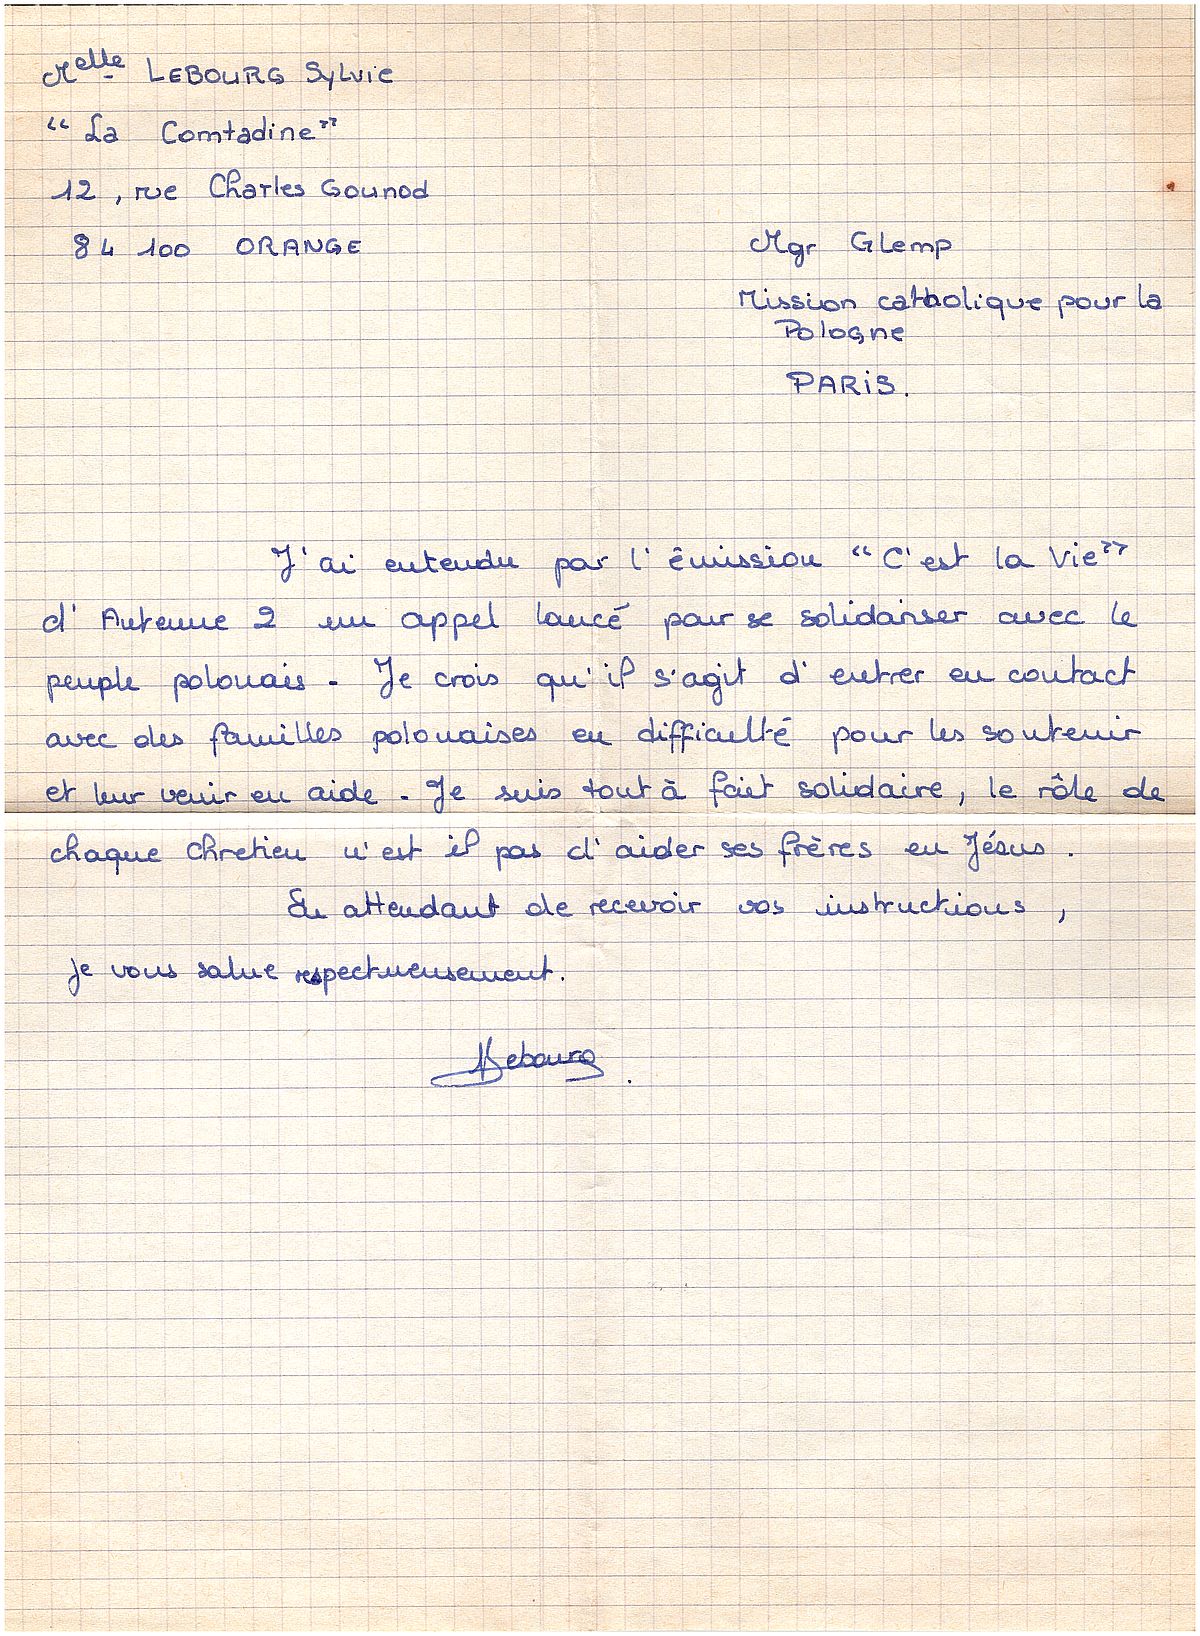 Melle LEBOURG Sylvie
"La Comtadine"
12, rue Charles Gounod
84 100 ORANGE
Mgr Glemp
Mission catholique pour la
Pologne
PARIS.
J'ai entendu par l'émission "C'est la Vie"
d'Antenne 2 un appel lancé pour se solidariser avec le
peuple polonais. Je crois qu'il s'agit d'entrer en contact
avec des familles polonaises en difficulté pour les soutenir
et leur venir en aide. Je suis tout à fait solidaire, le rôle de
chaque chretien n'est il pas d'aider ses frères en Jésus.
En attendant de recevoir vos instructions,
je vous salue respectueusement.
Lebourg